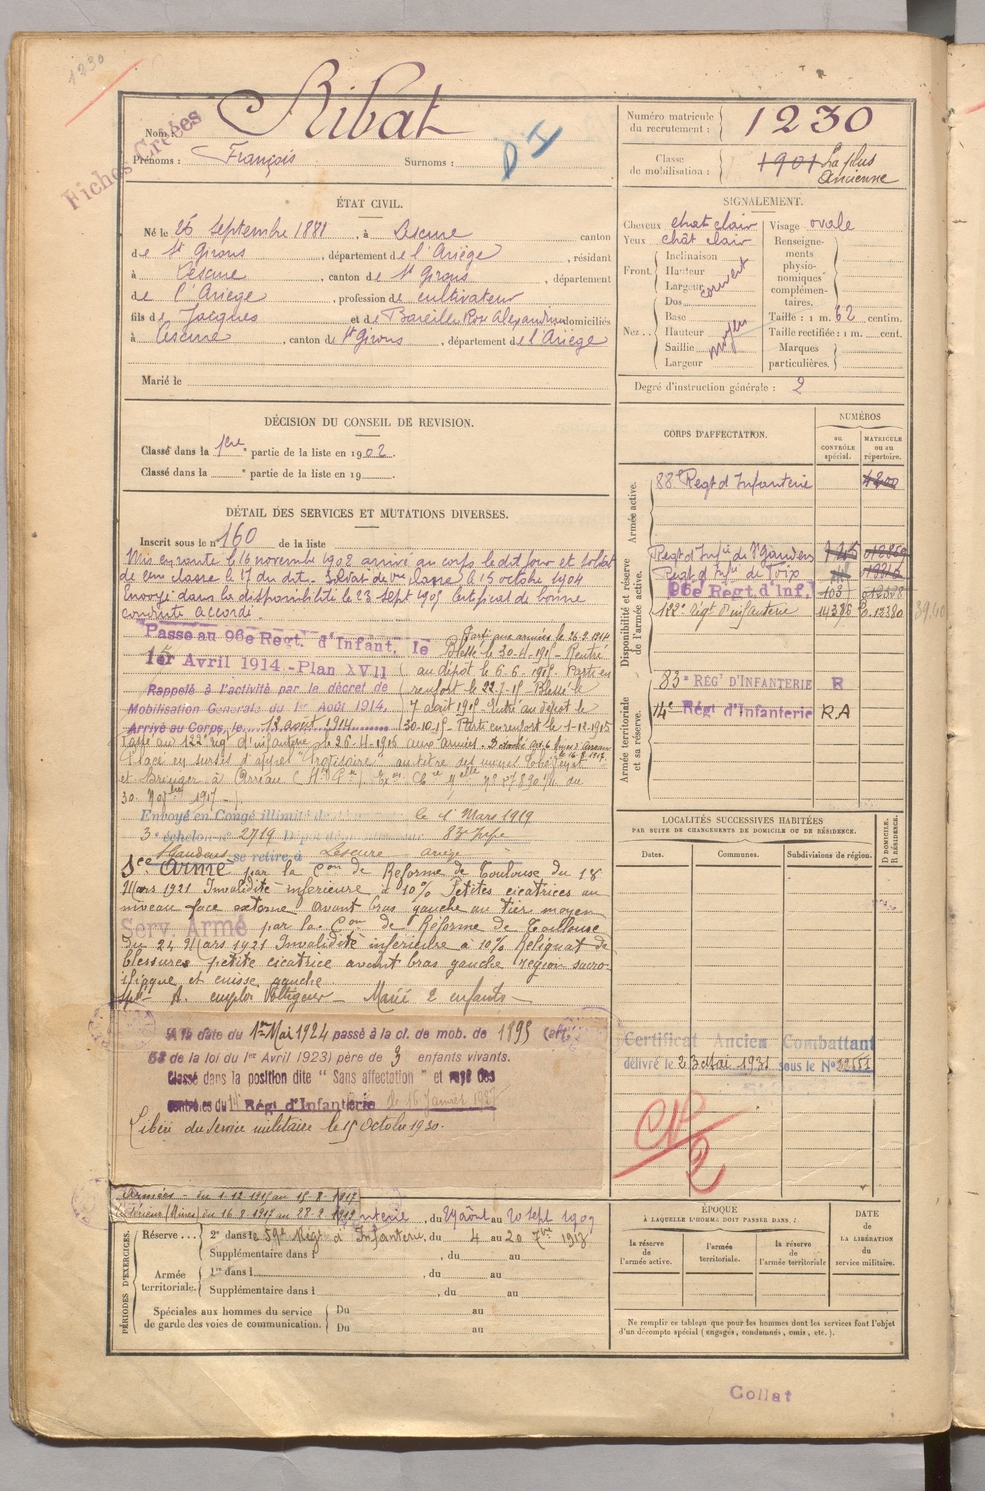 1230
Fiches Créées
Nom : Ribat
Prénoms : François Surnoms :
D I
Numéro matricule du recrutement : 1230
Classe de mobilisation : 1901 La plus Ancienne
ÉTAT CIVIL.
Né le 26 Septembre 1881, à Lescure canton
de St Girons, département de l'Ariège, résidant
à Lescure, canton de St Girons, département
de l'Ariège, profession de cultivateur
fils de Jacques et de Bareille Rose Alexandrine domiciliés
à Lescure, canton de St Girons, département de l'Ariège
Marié le
SIGNALEMENT.
Cheveux chat clair
Yeux chât clair
Front. Inclinaison Hauteur Largeur couvert
Nez... Dos Base Hauteur Saillie Largeur moyen
Visage ovale
Renseignements physionomiques complémentaires.
Taille : 1 m. 62 centim.
Taille rectifiée : 1 m. cent.
Marques particulières.
Degré d'instruction générale : 2
DÉCISION DU CONSEIL DE REVISION.
Classé dans la 1ère partie de la liste en 1902.
Classé dans la e partie de la liste en 19
CORPS D'AFFECTATION.
NUMÉROS
au contrôle spécial.
MATRICULE ou au répertoire.
Armée active.
88e Regt d'Infanterie 4200
Disponibilité et réserve de l'armée active.
Regt d'Infie de St Gaudens
Regt d'Infie de Foix
96e Régt. d'Inf. 103
122e régt d'infanterie 14386
Armée territoriale et sa réserve.
83e RÉGt D'INFANTERIE R
14e Régt d'Infanterie RA
DÉTAIL DES SERVICES ET MUTATIONS DIVERSES.
Inscrit sous le n° 160 de la liste
Mis en route le 16 novembre 1902 arrivé au corps le dit jour et soldat
de 2eme classe le 17 du dit. Soldat de 1ere classe le 15 octobre 1904
Envoyé dans la disponibilité le 23 sept 1905 Certificat de bonne
conduite accordé.
Passé au 96e Regt. d'Infant. le
1er Avril 1914.-Plan XVII
Rappelé à l'activité par le décret de
Mobilisation Générale du 1er Août 1914.
Arrivé au Corps, le 12 août 1914
Parti aux armées le 26.9.1914
Blessé le 30-4-1915 - Rentré
au dépôt le 6-6-1915. Parti en
renfort le 22-7-15 - Blessé le
7 août 1915 Rentré au dépôt le
30-10-15 - Parti en renfort le 1-12-1915
Passé au 122e régt d'infanterie le 26-11-1916 aux armées.
Placé en sursis d'appel "Provisoire" au titre des mines
30 Novbre 1917
Envoyé en Congé illimité de démobilisation le 1 Mars 1919
3e échelon n° 2719 Dépôt démobilisateur 83e Infie
St Gaudens se retire à Lescure Ariège
Sce Armé par la Con de Réforme de Toulouse du 18
Mars 1921 Invalidité inférieure à 10% Petites cicatrices au
niveau face externe avant bras gauche au tiers moyen
Serv. Armé par la Con de Réforme de Toulouse
du 24 Mars 1921 Invalidité inférieure à 10% Reliquat de
blessures petite cicatrice avant bras gauche région sacro-
iliaque et cuisse gauche
emploi Voltigeur - Marié 2 enfants
A la date du 1er Mai 1924 passé à la cl. de mob. de 1895 (art.
58 de la loi du 1er Avril 1923) père de 3 enfants vivants.
Classé dans la position dite "Sans affectation" et rayé des
contrôles du 14e Régt d'Infanterie le 16 Janvier 1927
Libéré du service militaire le 15 Octobre 1930.
LOCALITÉS SUCCESSIVES HABITÉES
PAR SUITE DE CHANGEMENTS DE DOMICILE OU DE RÉSIDENCE.
Dates. Communes. Subdivisions de région.
D DOMICILE. R RÉSIDENCE.
Certificat Ancien Combattant
délivré le 23 Mai 1931 sous le N°
Armées - du 1-12-1915 au 15-8-1917
Intérieur (Mines) du 16-8-1917 au 28-2-1919
PÉRIODES D'EXERCICES.
nterie, du 29 août au 20 sept 1907
Réserve... 2e dans le 59e Régt d'Infanterie, du 4 au 20 7bre 1913
Supplémentaire dans l , du au
Armée territoriale. 1re dans l , du au
Supplémentaire dans l , du au
Spéciales aux hommes du service de garde des voies de communication. Du au
Du au
ÉPOQUE
À LAQUELLE L'HOMME DOIT PASSER DANS :
la réserve de l'armée active.
l'armée territoriale.
la réserve de l'armée territoriale
DATE de LA LIBÉRATION du service militaire.
Ne remplir ce tableau que pour les hommes dont les services font l'objet
d'un décompte spécial (engagés, condamnés, omis, etc.).
Collat